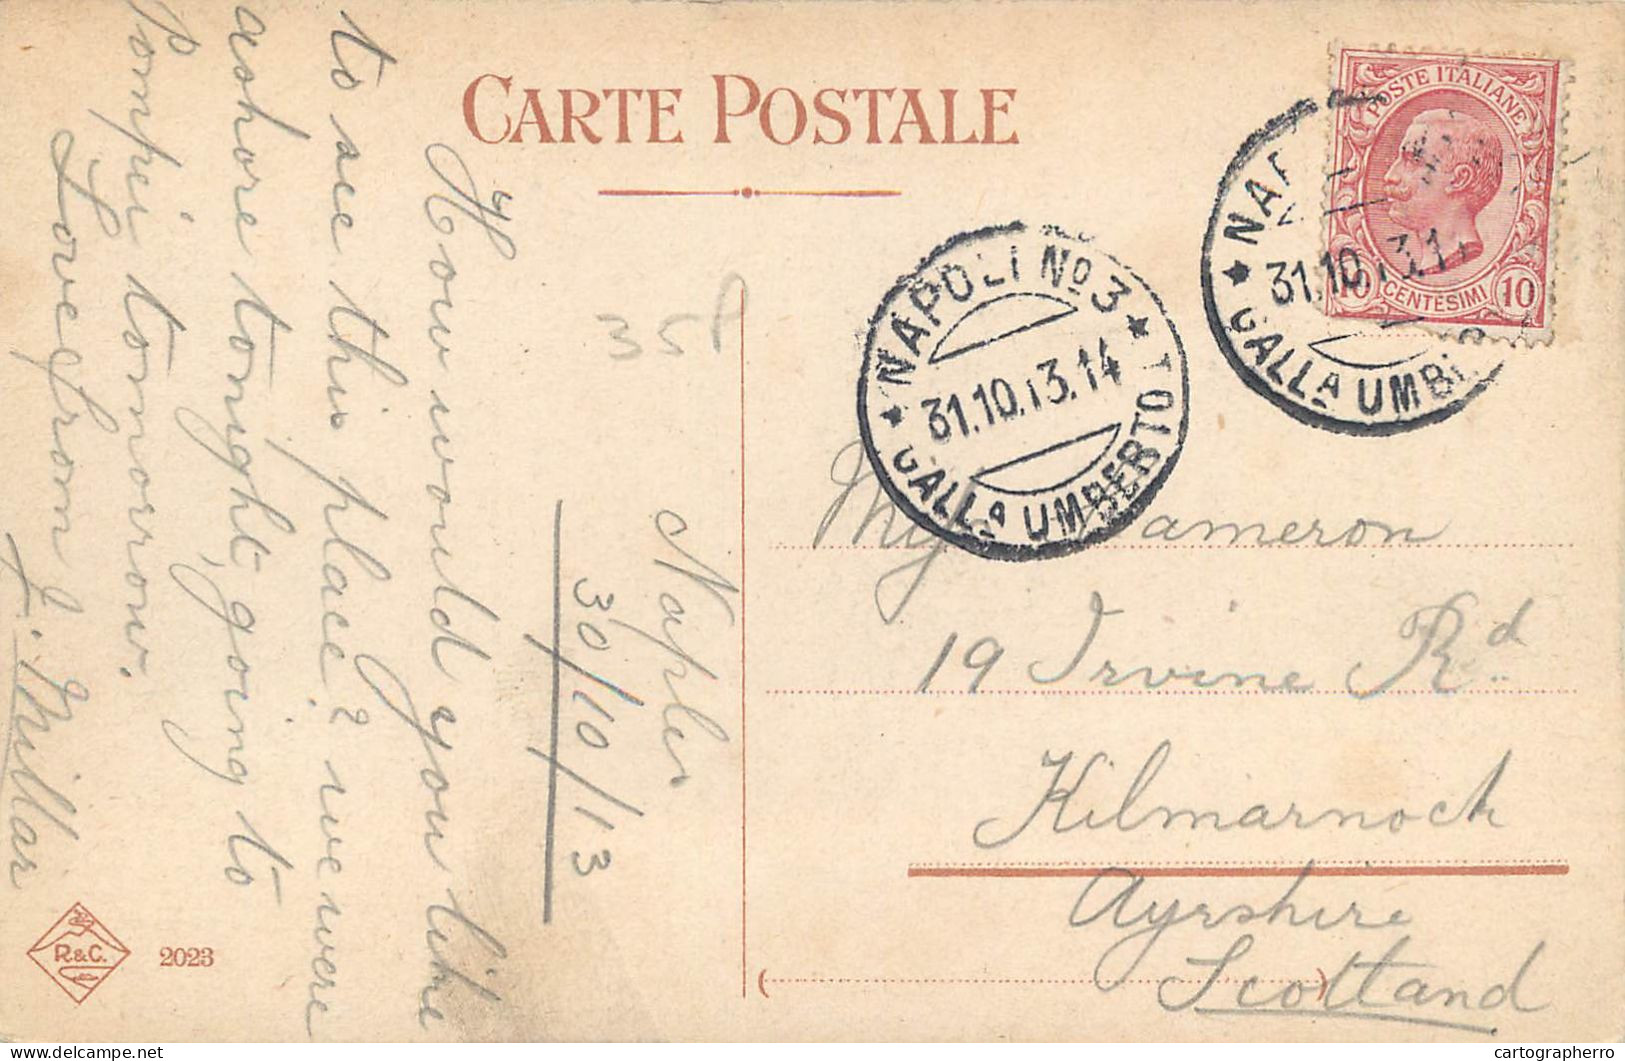 CARTE POSTALE
Naples
30/10/13
How would you like
to see this place? we were
ashore tonight, going to
Pompei tomorrow.
Love from
J. Millar
R.&C.
2023
POSTE ITALIANE
10 CENTESIMI 10
NAPOLI No 3
31.10.13.14
GALLA UMBERTO I º
31.10.13.1
GALLA UMB
Cameron
19 Irvine Rd
Kilmarnock
Ayrshire
Scotland
cartographerro